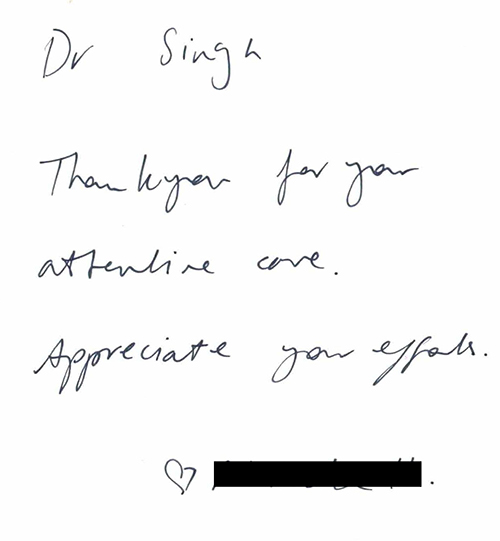 Dr Singh
Thankyou for your
attentive care.
Appreciate your efforts.
♡ .